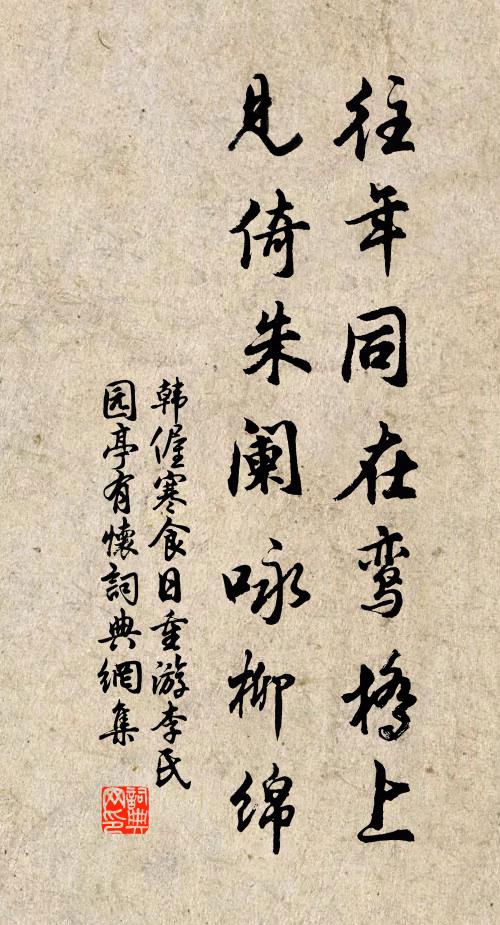 往年同在鸾桥上
见倚朱阑咏柳绵
韩偓寒食日重游李氏
园亭有懷詞典網集
詞典
网印